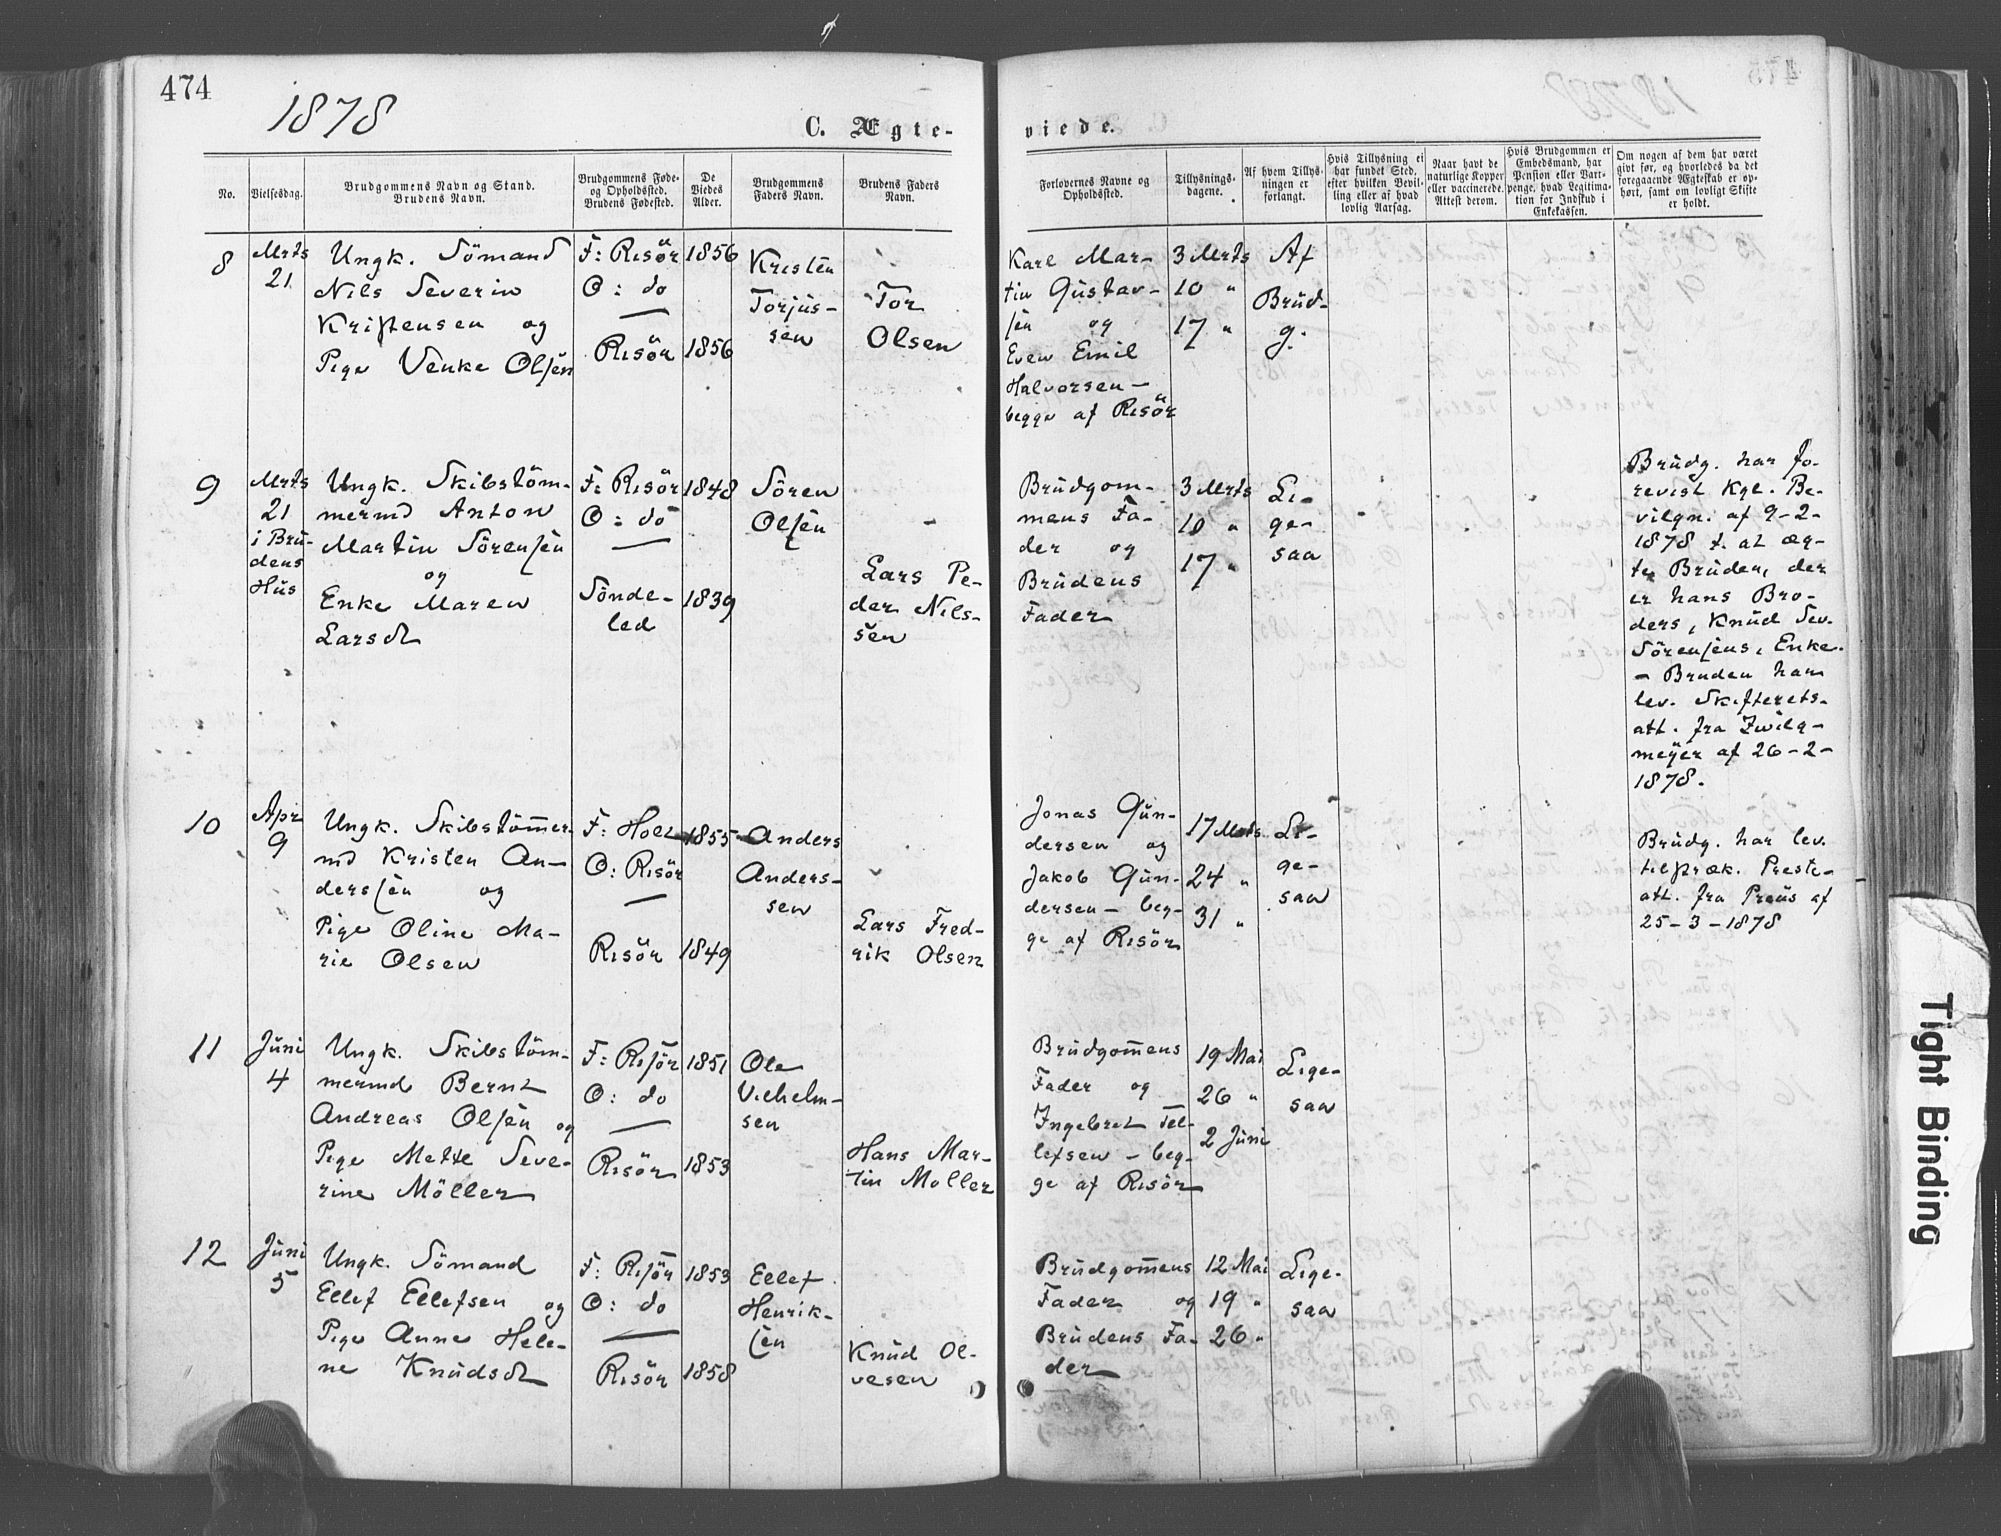 474
1878
C. Ægte-
viede.
No.
Vielsesdag.
Brudgommens Navn og Stand.
Brudens Navn.
Brudgommens Føde-
og Opholdssted.
Brudens Fødested.
De
Viedes
Alder.
Brudgommens
Faders Navn.
Brudens Faders
Navn.
Forlovernes Navne og
Opholdssted.
Tillysnings-
dagene.
Af hvem Tillys-
ningen er
forlangt.
Hvis Tillysning ei
har fundet Sted,
efter hvilken Bevil-
ling eller af hvad
lovlig Aarsag.
Naar havt de
naturlige Kopper
eller vaccinerede.
Attest derom.
Hvis Brudgommen er
Embedsmand, har
Pension eller Vart-
penge, hvad Legitima-
tion for Indskud i
Enkekassen.
Om nogen af dem har været
gift før, og hvorledes da det
foregaaende Ægteskab er op-
hørt, samt om lovligt Skifte
er holdt.
8
Mrts
21
Ungk. Sömand
Nils Severin
Kristensen og
Pige Venke Olsen
F: Risör
O: do
Risör
1856
1856
Kristen
Torjus-
sen
Tor
Olsen
Karl Mar-
tin Gustav-
sen og
Even Emil
Halvorsen –
begge af Risör
3 Mrts
10 "
17 "
Af
Brud-
g.
9
Mrts
21
i Bru-
dens
Hus
Ungk. Skibstöm-
mermd Anton
Martin Sörensen
og
Enke Maren
Larsdt
F: Risör
O: do
Sönde-
led
1848
1839
Sören
Olsen
Lars Pe-
der Nils-
sen
Brudgom-
mens Fa-
der og
Brudens
Fader
3 Mrts
10 "
17 "
Li-
ge-
saa
Brudg. har fo-
revist Kgl. Be-
vilgn. af 9-2-
1878 t. at æg-
te Bruden, der
er hans Bro-
ders, Knud Sev.
Sörensens, Enke.
– Bruden har
lev. Skifterets-
att. fra Zwilg-
meyer af 26-2-
1878.
10
Apr
9
Ungk. Skibstömmer-
md Kristen An-
dersen og
Pige Oline Ma-
rie Olsen
F: Holt
O: Risör
Risör
1855
1849
Anders
Anders-
sen
Lars Fred-
rik Olsen
Jonas Gun-
dersen og
Jakob Gun-
dersen – beg-
ge af Risör
17 Mrts
24 "
31 "
Li-
ge-
saa
Brudg. har lev.
tilstræk. Preste-
att. fra Preus af
25-3-1878
11
Juni
4
Ungk. Skibstöm-
mermd Bernt
Andreas Olsen og
Pige Mette Seve-
rine Möller
F: Risör
O: do
Risör
1851
1853
Ole
Vilhelm-
sen
Hans Mar-
tin Möller
Brudgomens
Fader og
Ingebret Tel-
lefsen – beg-
ge af Risör
19 Mai
26 "
2 Juni
Lige-
saa
12
Juni
5
Ungk. Sömand
Ellef Ellefsen og
Pige Anne Hele-
ne Knudsdt
F: Risör
O: do
Risör
1853
1858
Ellef
Henrik-
sen
Knud Ol-
vesen
Brudgomens
Fader og
Brudens Fa-
der
12 Mai
19 "
26 "
Lige-
saa
Tight Binding